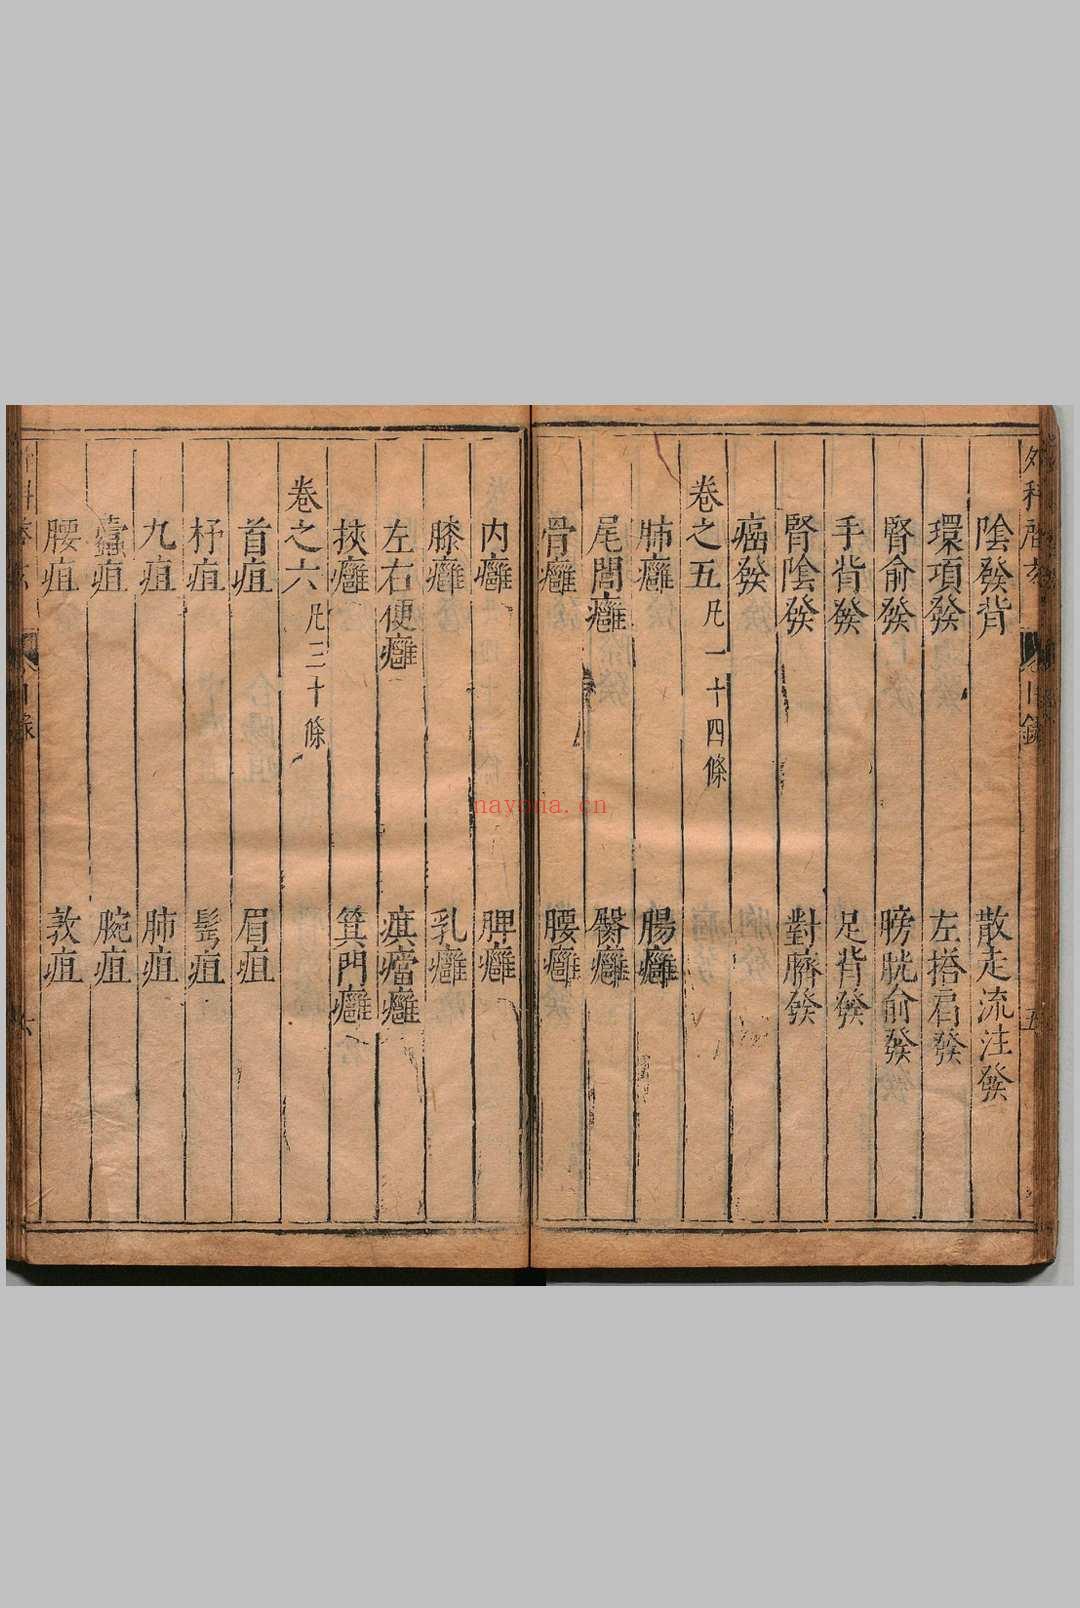 外科啓玄 目錄 五
陰發背 散走流注發
環項發 左搭肩發
腎俞發 膀胱俞發
手背發 足背發
腎陰發 對臍發
瘑發
卷之五 凡一十四條
肺癰 腸癰
尾閭癰 臀癰
骨癰 腰癰
内癰 脾癰
膝癰 乳癰
左右便癰 㾾癰
挾癰 箕門癰
卷之六 凡三十條
首疽 眉疽
杼疽 髩疽
九疽 肺疽
蠹疽 腕疽
腰疽 敦疽
目錄 六
nayona.cn